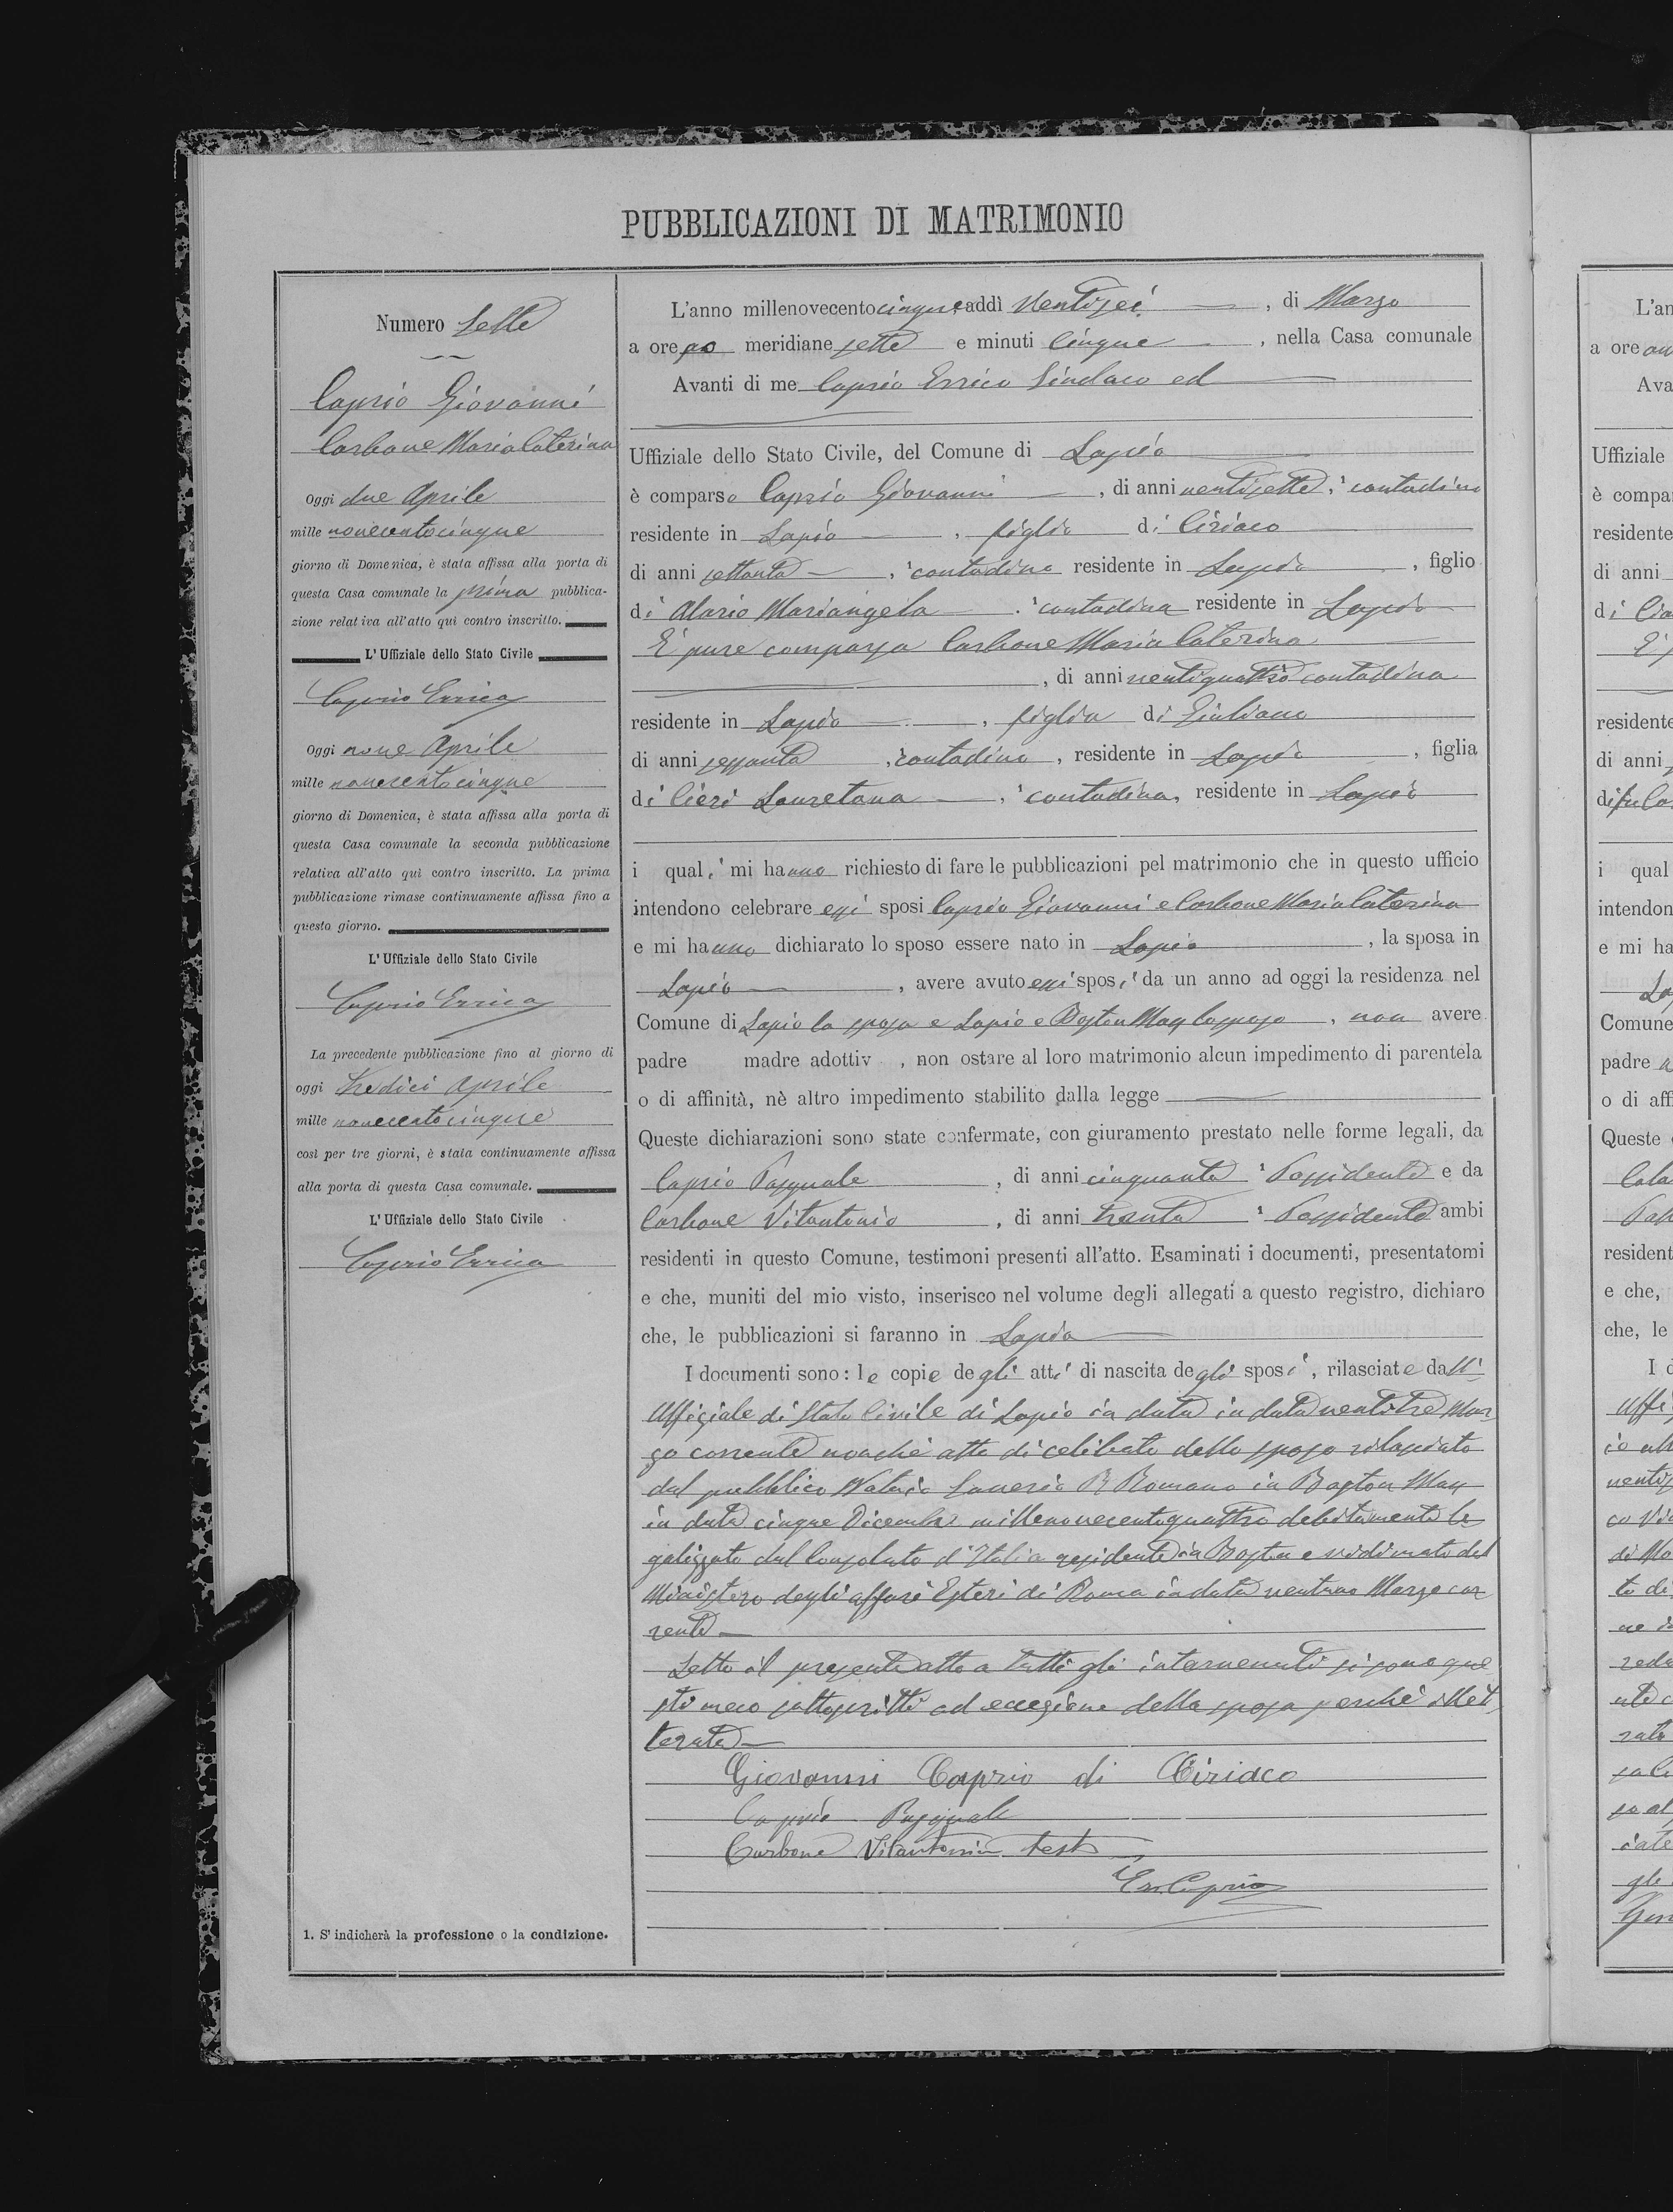 PUBBLICAZIONI DI MATRIMONIO
Numero Sette
Caprio Giovanni
Carbone Maria Caterina
Oggi due Aprile
mille novecentocinque
giorno di Domenica, è stata affissa alla porta di
questa Casa comunale la prima pubblica-
zione relativa all'atto quì contro inscritto.
L'Uffiziale dello Stato Civile
Caprio Errico
Oggi nove Aprile
mille novecentocinque
giorno di Domenica, è stata affissa alla porta di
questa Casa comunale la seconda pubblicazione
relativa all'atto quì contro inscritto. La prima
pubblicazione rimase continuamente affissa fino a
questo giorno.
L'Uffiziale dello Stato Civile
Caprio Errico
La precedente pubblicazione fino al giorno di
oggi tredici Aprile
mille novecentocinque
così per tre giorni, è stata continuamente affissa
alla porta di questa Casa comunale.
L'Uffiziale dello Stato Civile
Caprio Errico
1. S'indicherà la professione o la condizione.
L'anno millenovecentocinque addì Ventisei, di Marzo
a ore po meridiane sette e minuti Cinque, nella Casa comunale
Avanti di me Caprio Errico Sindaco ed
Uffiziale dello Stato Civile, del Comune di Lapio
è comparso Caprio Giovanni, di anni ventisette, contadino
residente in Lapio, figlio di Ciriaco
di anni settanta, contadino residente in Lapio, figlio
di Alario Mariangela, contadina residente in Lapio
E' pure comparsa Carbone Maria Caterina
, di anni ventiquattro contadina
residente in Lapio, figlia di Giuliano
di anni sessanta, contadino, residente in Lapio, figlia
di Cieri Lauretana, contadina, residente in Lapio
i quali mi hanno richiesto di fare le pubblicazioni pel matrimonio che in questo ufficio
intendono celebrare essi sposi Caprio Giovanni e Carbone Maria Caterina
e mi hanno dichiarato lo sposo essere nato in Lapio, la sposa in
Lapio, avere avuto essi sposi da un anno ad oggi la residenza nel
Comune di Lapio la sposa e Lapio e Boston Mas lo sposo, non avere
padre madre adottiv, non ostare al loro matrimonio alcun impedimento di parentela
o di affinità, nè altro impedimento stabilito dalla legge
Queste dichiarazioni sono state confermate, con giuramento prestato nelle forme legali, da
Caprio Pasquale, di anni cinquanta Possidente e da
Carbone Vitantonio, di anni trenta Possidente ambi
residenti in questo Comune, testimoni presenti all'atto. Esaminati i documenti, presentatomi
e che, muniti del mio visto, inserisco nel volume degli allegati a questo registro, dichiaro
che, le pubblicazioni si faranno in Lapio
I documenti sono: le copie degli atti di nascita degli sposi, rilasciate dall'
Uffiziale di Stato Civile di Lapio in data in data ventitre Mar
zo corrente nonché atto di celibato dello sposo rilasciato
dal pubblico Notaio Saverio R Romano in Boston Mas
in data cinque Dicembre millenovecentoquattro debitamente le
galizzato dal Consolato d'Italia residente in Boston e vidimato dal
Ministero degli affari Esteri di Roma in data ventuno Marzo cor
rente
Letto il presente atto a tutti gli intervenuti si sono que
sti meco sottoscritti ad eccezione della sposa perché illet
terata
Giovanni Caprio di Ciriaco
Caprio Pasquale
Carbone Vitantonio test
Er. Caprio
L'an
a ore an
Ava
Uffiziale
è compar
residente
di anni
di
residente
di anni
i qual
intendon
e mi ha
Comune
padre
o di aff
Queste
resident
e che,
che, le
I d